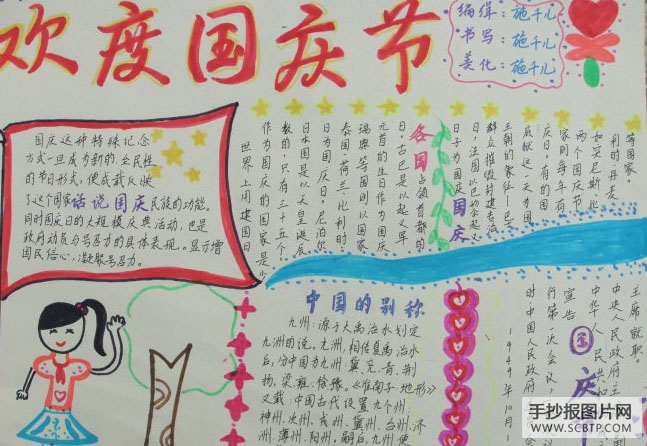 欢度国庆节
编缉：施千儿
书写：施千儿
美化：施千儿
国庆这种特殊记念
方式一旦成为新的全民性
的节日形式，便成载反映
了这个国家话说国庆民族的功能，
同时国庆日的大规模庆典活动，也是
政府动员与号召力的具体表现。显示增
国民信心，凝聚号召力。
世界上用建国日
作为国庆的国家是少
数的，只有三十五个。
日本国是以天皇诞辰
日为国庆日。尼泊尔
泰国、荷兰、比利时
瑞典等国则以国家
元首的生日作为国庆
日，古巴是以起义军
各国占领首都的
日子为国庆国庆
日，法国以巴纳会起义
群众摧毁封建专治
王朝的象征—巴士
底狱这一天为国
庆日，有的国
家则每年有
两个国庆节
如突尼斯比
利时丹麦
等国家。
中国的别称
九州：源于大禹治水划定
九州的说。九州，相传夏禹治水
后，分中国为九州，冀、兖、青、荆
扬、梁雍、徐豫。《淮南子·地形》
又载 中国古代设置九个州
神州、次州、戎州、冀州、台州、济
州、薄州、阳州。副后，九州便
国庆
1949年10月
时中国人民政府
行第一次会议
宣告
中华人民共和
中央人民政府主
主席就职。
手抄报图片网
WWW.SCBTP.COM